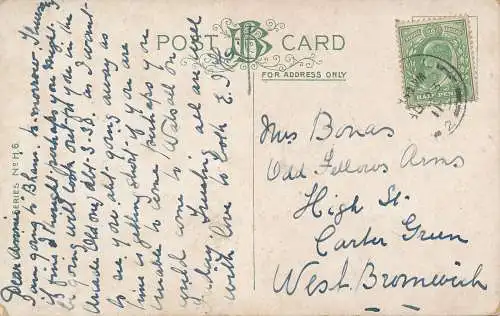 POST CARD
FOR ADDRESS ONLY
HALFPENNY
SERIES No H.6
Dear Annie
I am going to Bham. to-morrow, Thursday
if fine. I though perhaps you might
be going will look out for you in the
Arcade (Old one) abt. 3-35. as I want
to see you abt. going away as
time is getting short if you are
unable to come perhaps you
could come to Walsall on
Friday. Trusting all are well
with love to both E.
Mrs Bonas
Odd Fellows Arms
High St.
Carter Green
West Bromwich